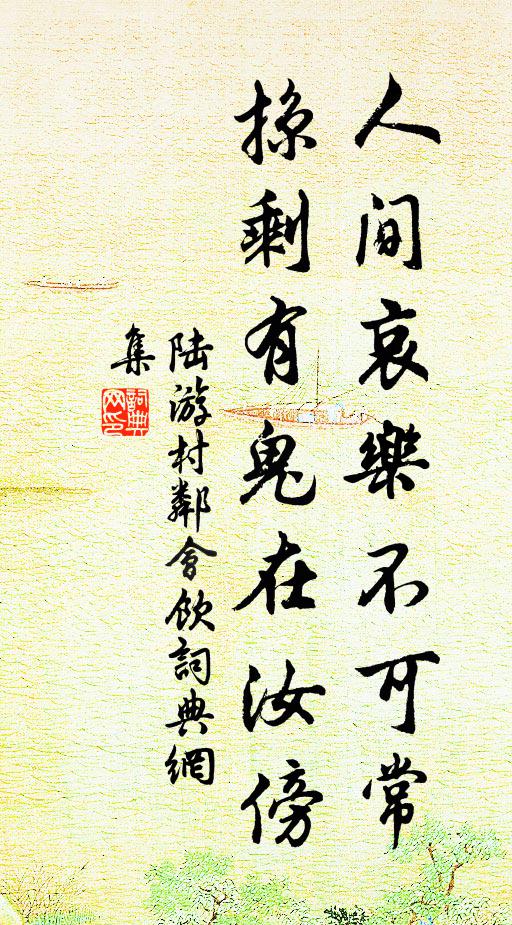 人间哀樂不可常
掠剩有鬼在汝傍
陆游村鄰會飲詞典網
集
詞典
网印